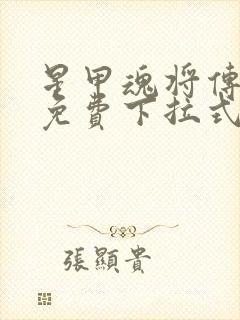 星甲魂将傳
免費下拉式
張顯貴